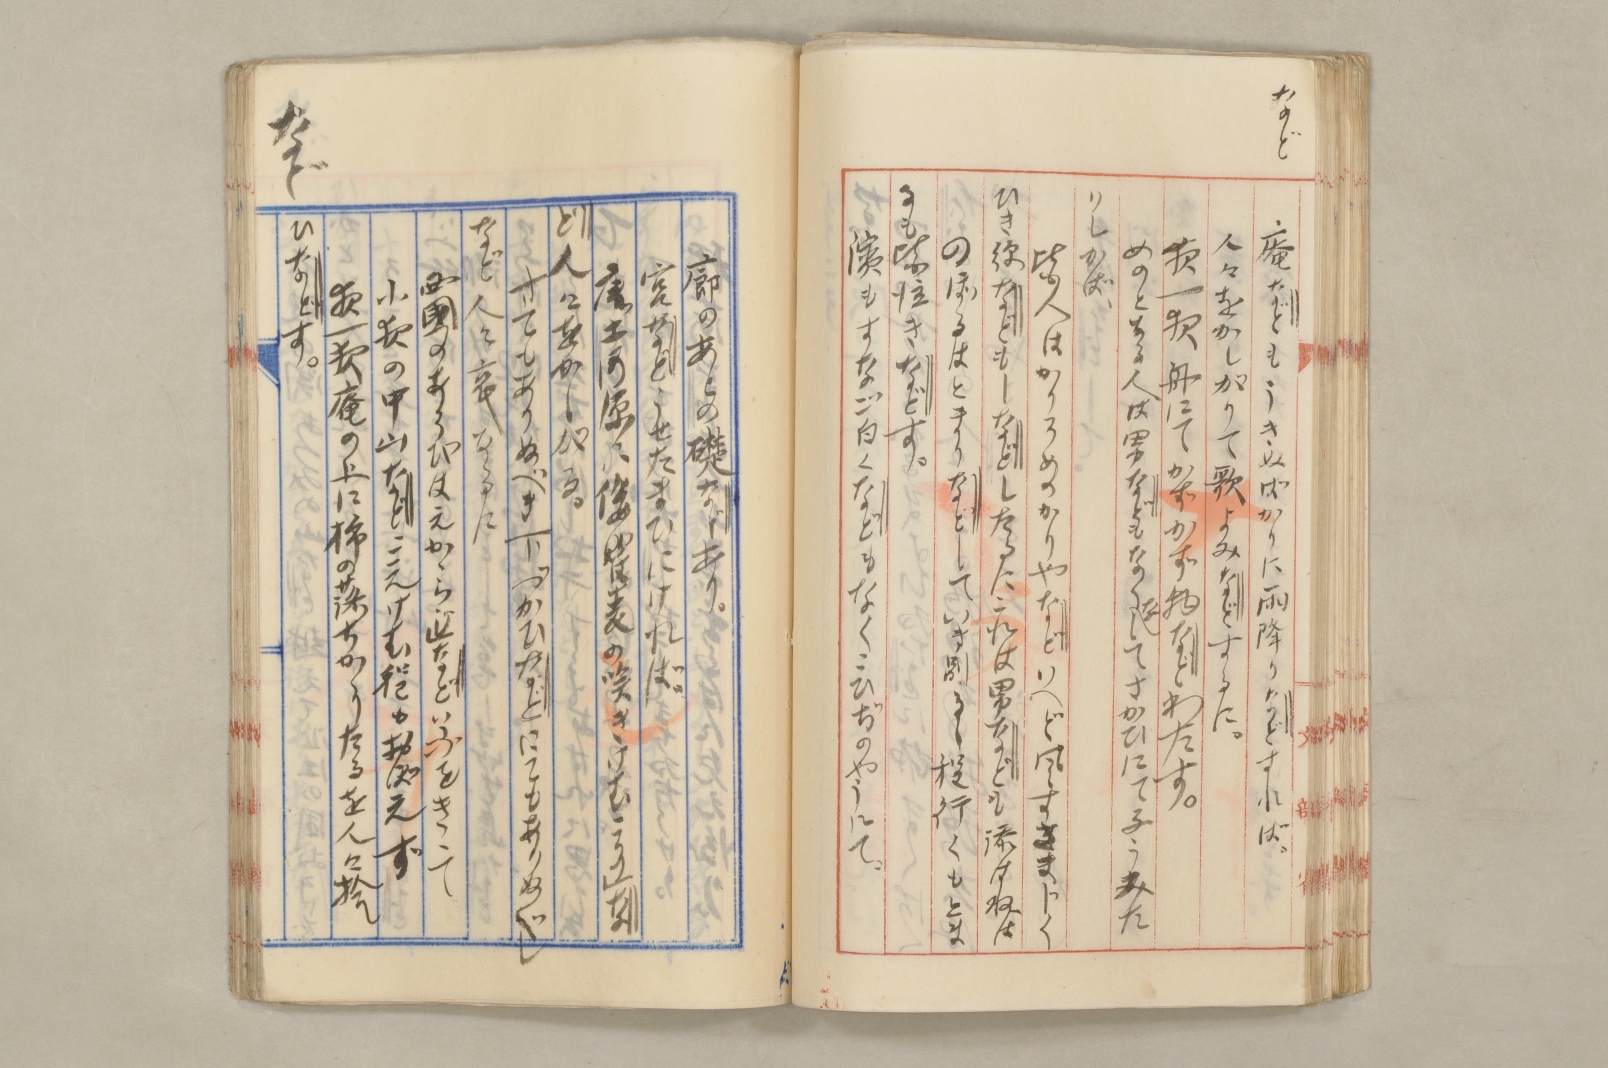 など
庵などもうきぬばかりに雨降りなどすれば。
人々をかしがりて歌よみなどするに。
荻一荻舟にてかずかず物などわたす。
めのとなる人は男などもなくしてさかひにて子うみた
りしかば、
皆人はかりそめのかりやなどいへど風すきまじく
ひき渡などもしなどしたるにこれは男なども添はねば
のぼるはとまりなどしていき別るゝ程行くもとま
るも皆泣きなどす。
濱もすなご白くなどもなくこひぢのやうにて。
など
廊のあとの礎などあり。
宮などうせたまひにければ
唐土河原に倭瞿麦の咲きけむこそな
ど人々をかしがる。
すてもありぬべき下づかひなどにてもありぬべし
など人々哀がるに
西國のあそびはえかゝらじなどいふをきゝて
小荻の中山などこえけむ程もおぼえず
荻一荻庵の上に柿の落ちかゝりたるを人々拾
ひなどす。